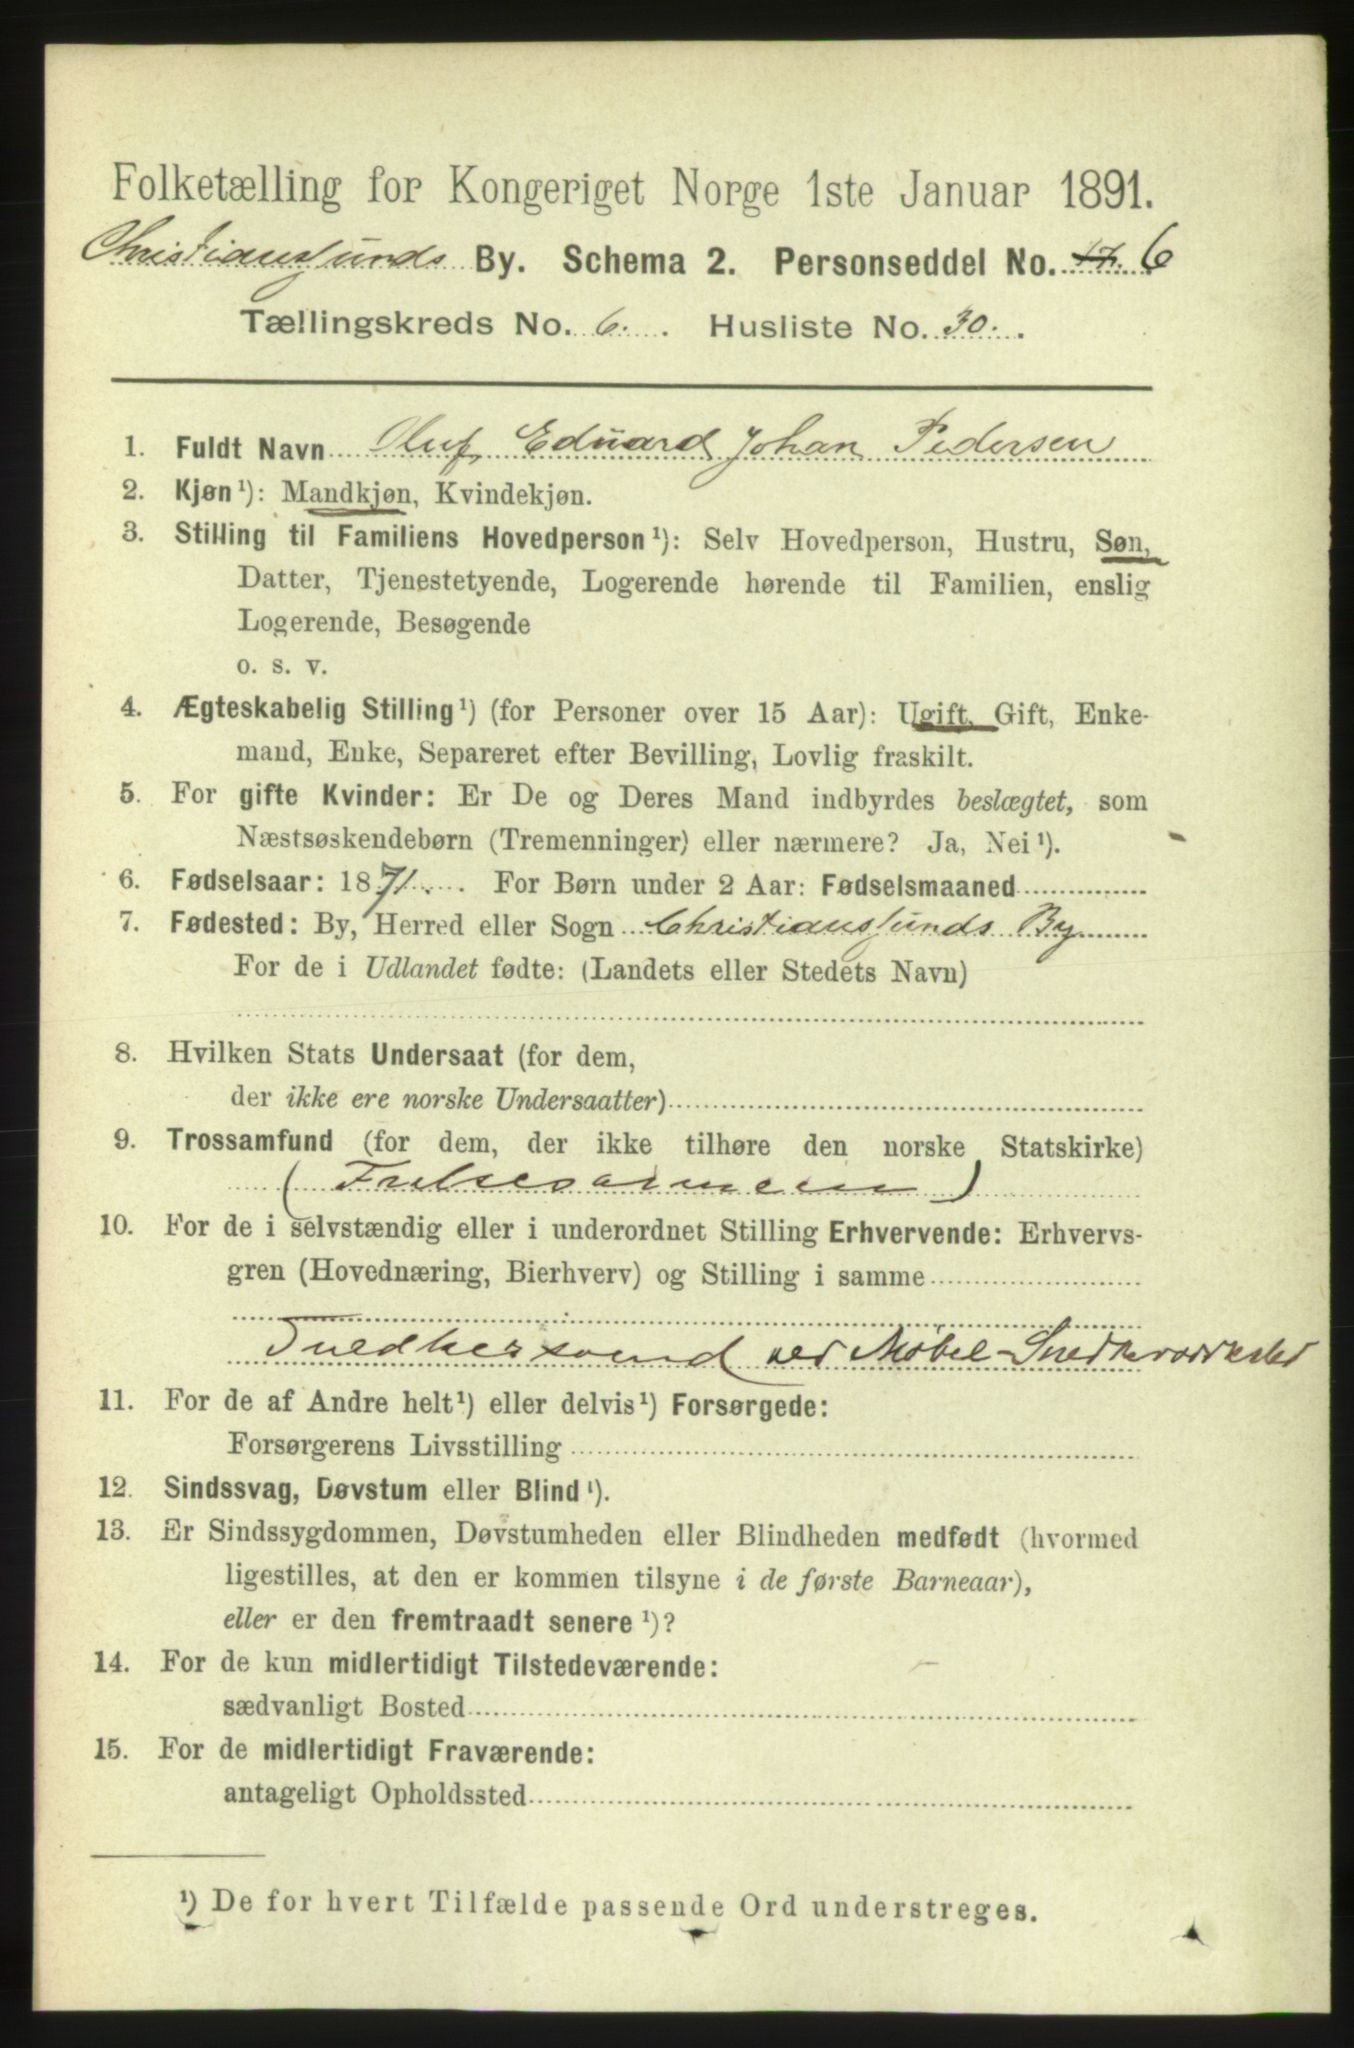 Folketælling for Kongeriget Norge 1ste Januar 1891.
Christianssunds By. Schema 2. Personseddel No. 6
Tællingskreds No. 6. Husliste No. 30.
1. Fuldt Navn Oluf Eduard Johan Pedersen
2. Kjøn¹): Mandkjøn, Kvindekjøn.
3. Stilling til Familiens Hovedperson¹): Selv Hovedperson, Hustru, Søn,
Datter, Tjenestetyende, Logerende hørende til Familien, enslig
Logerende, Besøgende
o. s. v.
4. Ægteskabelig Stilling¹) (for Personer over 15 Aar): Ugift, Gift, Enke-
mand, Enke, Separeret efter Bevilling, Lovlig fraskilt.
5. For gifte Kvinder: Er De og Deres Mand indbyrdes beslægtet, som
Næstsøskendebørn (Tremenninger) eller nærmere? Ja, Nei¹).
6. Fødselsaar: 1871. For Børn under 2 Aar: Fødselsmaaned
7. Fødested: By, Herred eller Sogn Christianssunds By
For de i Udlandet fødte: (Landets eller Stedets Navn)
8. Hvilken Stats Undersaat (for dem,
der ikke ere norske Undersaatter)
9. Trossamfund (for dem, der ikke tilhøre den norske Statskirke)
(Frelsesarmeen)
10. For de i selvstændig eller i underordnet Stilling Erhvervende: Erhvervs-
gren (Hovednæring, Bierhverv) og Stilling i samme
Snedkersvend ved Møbel-Snedkerværksted
11. For de af Andre helt¹) eller delvis¹) Forsørgede:
Forsørgerens Livsstilling
12. Sindssvag, Døvstum eller Blind¹).
13. Er Sindssygdommen, Døvstumheden eller Blindheden medfødt (hvormed
ligestilles, at den er kommen tilsyne i de første Barneaar),
eller er den fremtraadt senere¹)?
14. For de kun midlertidigt Tilstedeværende:
sædvanligt Bosted
15. For de midlertidigt Fraværende:
antageligt Opholdssted
¹) De for hvert Tilfælde passende Ord understreges.